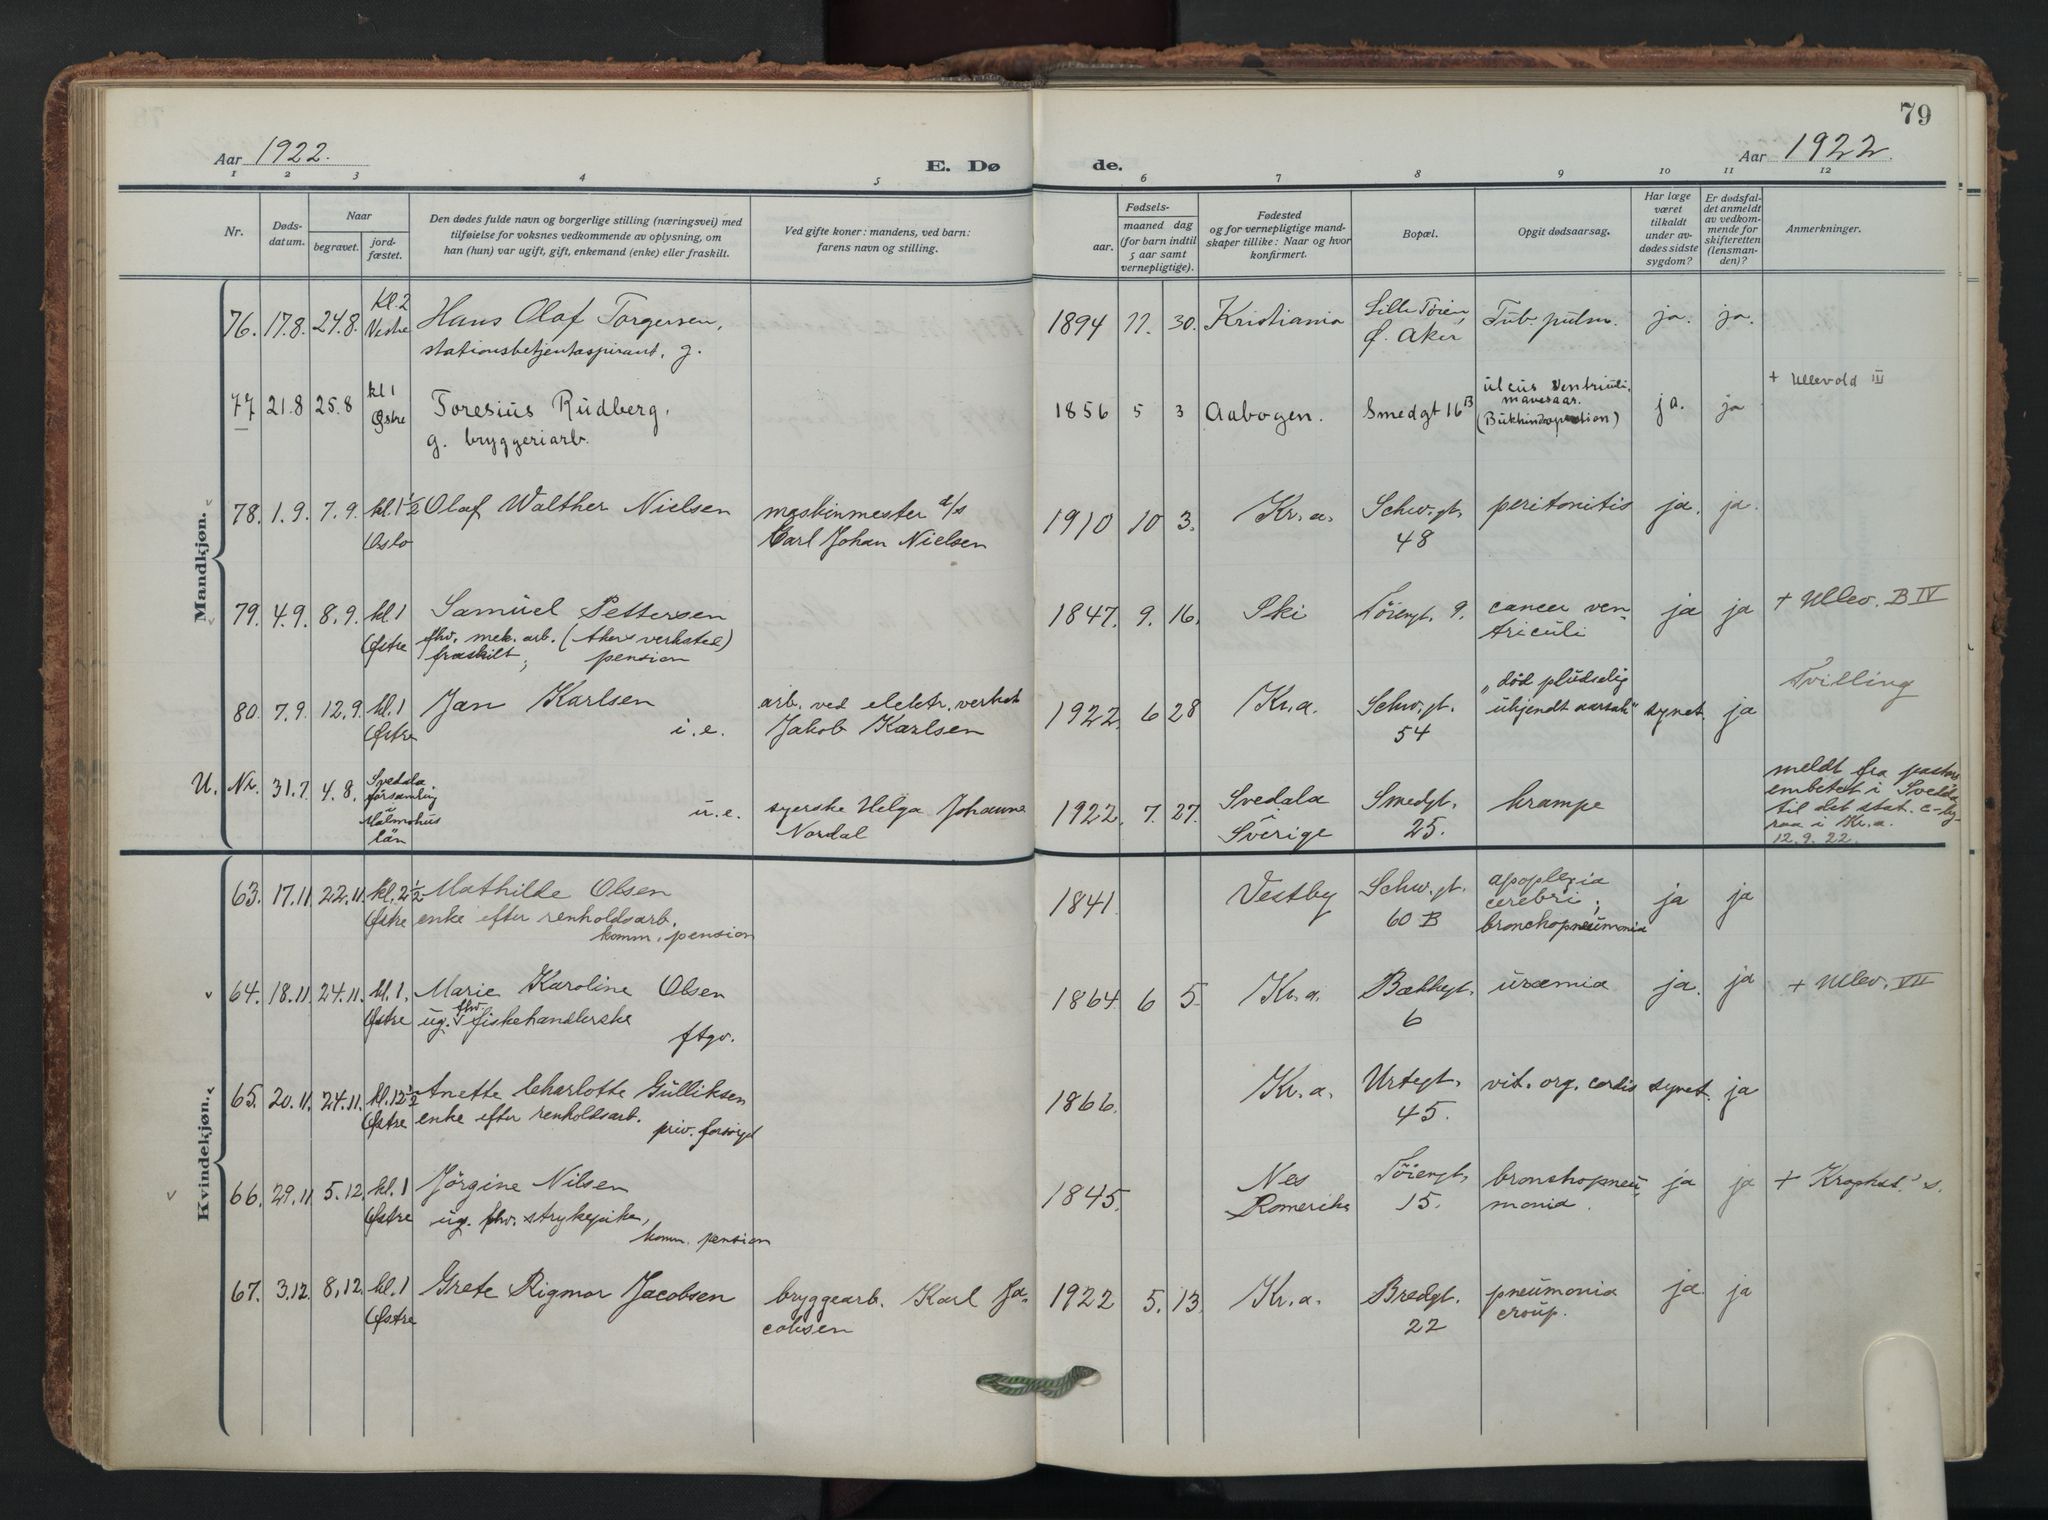 79
Aar 1922.
E. Dø
de.
Aar 1922.
1 2 3 4 5 6 7 8 9 10 11 12
Nr.
Døds-
datum.
Naar
begravet.
jord-
fæstet.
Den dødes fulde navn og borgerlige stilling (næringsvei) med
tilføielse for voksnes vedkommende av oplysning, om
han (hun) var ugift, gift, enkemand (enke) eller fraskilt.
Ved gifte koner: mandens, ved barn:
farens navn og stilling.
Fødsels-
aar.
maaned dag
(for barn indtil
5 aar samt
vernepligtige).
Fødested
og for vernepligtige mand-
skaper tillike: Naar og hvor
konfirmert.
Bopæl.
Opgit dødsaarsag.
Har læge
været
tilkaldt
under av-
dødes sidste
sygdom?
Er dødsfal-
det anmeldt
av vedkom-
mende for
skifteretten
(lensman-
den)?
Anmerkninger.
Mandkjøn.
76. 17.8. 24.8. kl. 2 Hans Olaf Torgersen, 1894 11. 30. Kristiania Lille Tøien, Tub. pulm. ja. ja.
Vestre stationsbetjentaspirant, g. Ø. Aker
77 21.8 25.8 kl 1 Toresius Rudberg, 1856 5 3 Aabogen. Smedgt 16B ulcus ventriculi, ja. ja + Ullevold III
Østre g. bryggeriarb. mavesaar.
(Bukhindeoperation)
78. 1.9. 7.9. kl. 1½ Olaf Walther Nielsen maskinmester d/s 1910 10 3. Kr.a. Schw.gt. peritonitis ja. ja.
Oslo Carl Johan Nielsen 48
79. 4.9. 8.9. kl. 1 Samuel Pettersen 1847. 9. 16. Ski Tøiengt. 9. cancer ven- ja ja + Ullev. B IV
Østre fhv. mek. arb. (Akers verksted) triculi
fraskilt, pension
80. 7.9. 12.9. kl. 1 Jan Karlsen arb. ved elektr. verket 1922. 6 28 Kr.a. Schw.gt. "død pludselig synet ja Tvilling
Østre i.e. Jakob Karlsen 54 ukjendt aarsak"
U. Nr. 31.7. 4.8. Svedala u.e. syerske Helga Johanne 1922. 7. 27. Svedala Smedgt. krampe meldt fra pastors
församling Nordal i Sverige 25. embetet i Svedala
i Malmøhus til det stat. c-by-
län raa i Kr.a.
12.9.22.
Kvindekjøn.
63. 17.11 22.11. kl. 2½ Mathilde Olsen 1841. Vestby Schw.gt. apoplexia ja ja
Østre enke efter renholdsarb. 60 B cerebri;
komm. pension bronchopneumonia
64. 18.11. 24.11. kl. 1. Marie Karoline Olsen 1864 6 5. Kr.a. Bakkegt. uræmia ja. ja + Ullev. VII
Østre ug. fhv. fiskehandlerske 6
ftgv.
65. 20.11. 24.11. kl. 12½ Anette Charlotte Gulliksen 1866. Kr.a. Urtegt. vit. org. cordis synet. ja
Østre enke efter renholdsarb. 45.
priv. forsørget
66. 29.11. 5.12. kl. 1 Jørgine Nilsen 1845. Nes Tøiengt. bronchopneu- ja ja + Krophst.'s.
Østre ug. fhv. strykepike, Romerike 15. monia.
komm. pension
67. 3.12. 8.12. kl. 1 Grete Rigmor Jacobsen bryggearb. Karl Ja- 1922 5. 13. Kr.a. Bredgt. pneumonia ja. ja
Østre cobsen 22 croup.